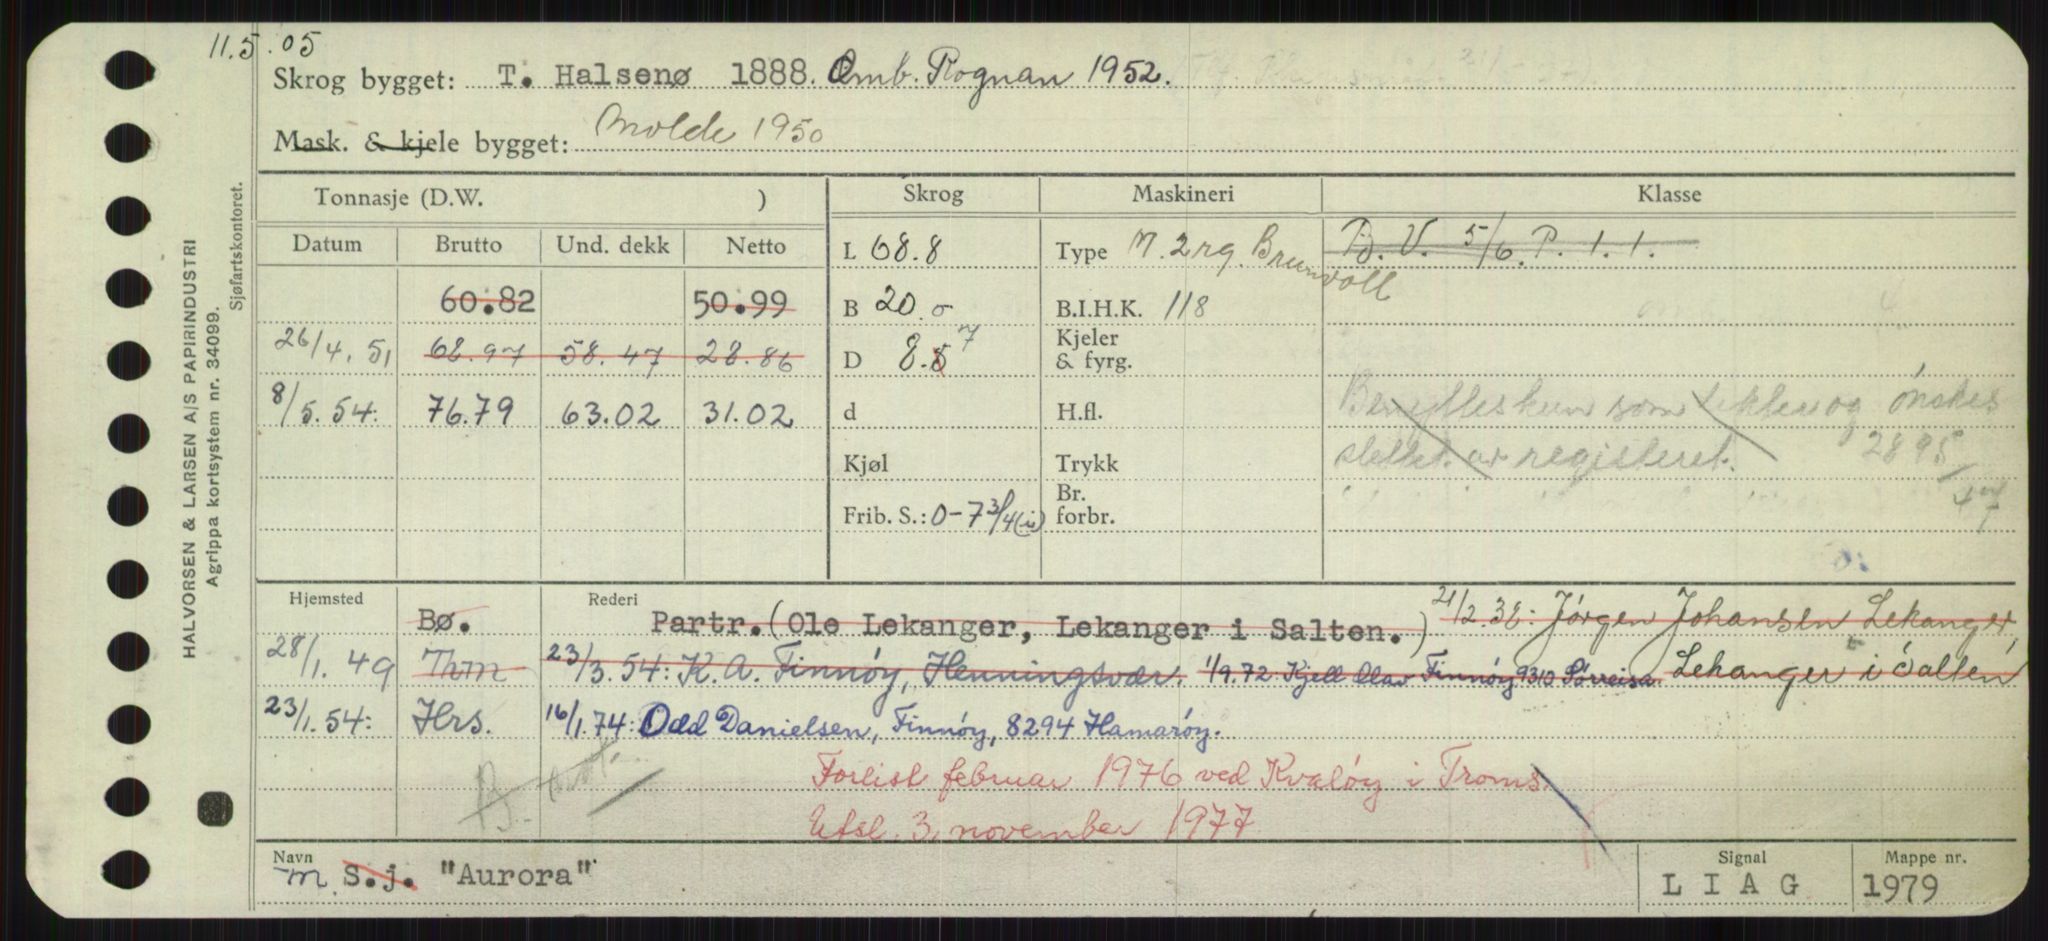 11.5.05
Skrog bygget: T. Halsenø 1888. Omb. Rognan 1952.
Mask. & kjele bygget: Molde 1950
HALVORSEN & LARSEN A/S PAPIRINDUSTRI
Agrippa kortsystem nr. 34099.
Sjøfartskontoret.
Tonnasje (D.W. ) Skrog Maskineri Klasse
Datum Brutto Und. dekk Netto L 68.8 Type M. 2 rg. Brunvoll B.V. 5/6. P. 1. 1.
60.82 50.99 B 20.0 B.I.H.K. 118
26/4.51 68.97 58.47 28.86 D 8.5 7 Kjeler & fyrg.
8/5.54: 76.79 63.02 31.02 d H.fl. Benyttes kun som lekter og ønskes
Kjøl Trykk slettet av registeret. 2895/47
Frib. S.: 0-7 3/4 (is) Br. forbr.
Hjemsted Rederi
Bø. Partr. (Ole Lekanger, Lekanger i Salten.) 21/2.38: Jørgen Johansen Lekanger,
28/1.49 Thm 23/3.54: K. A. Finnøy, Henningsvær. 1/9.72 Kjell Olav Finnøy 9310 Sørreisa. Lekanger i Salten
23/1.54: Hrs. 16/1.74: Odd Danielsen, Finnøy, 8294 Hamarøy.
Forlist februar 1976 ved Kvaløy i Troms.
Utsl. 3. november 1977
Navn Signal Mappe nr.
M. S.j. "Aurora" L I A G 1979